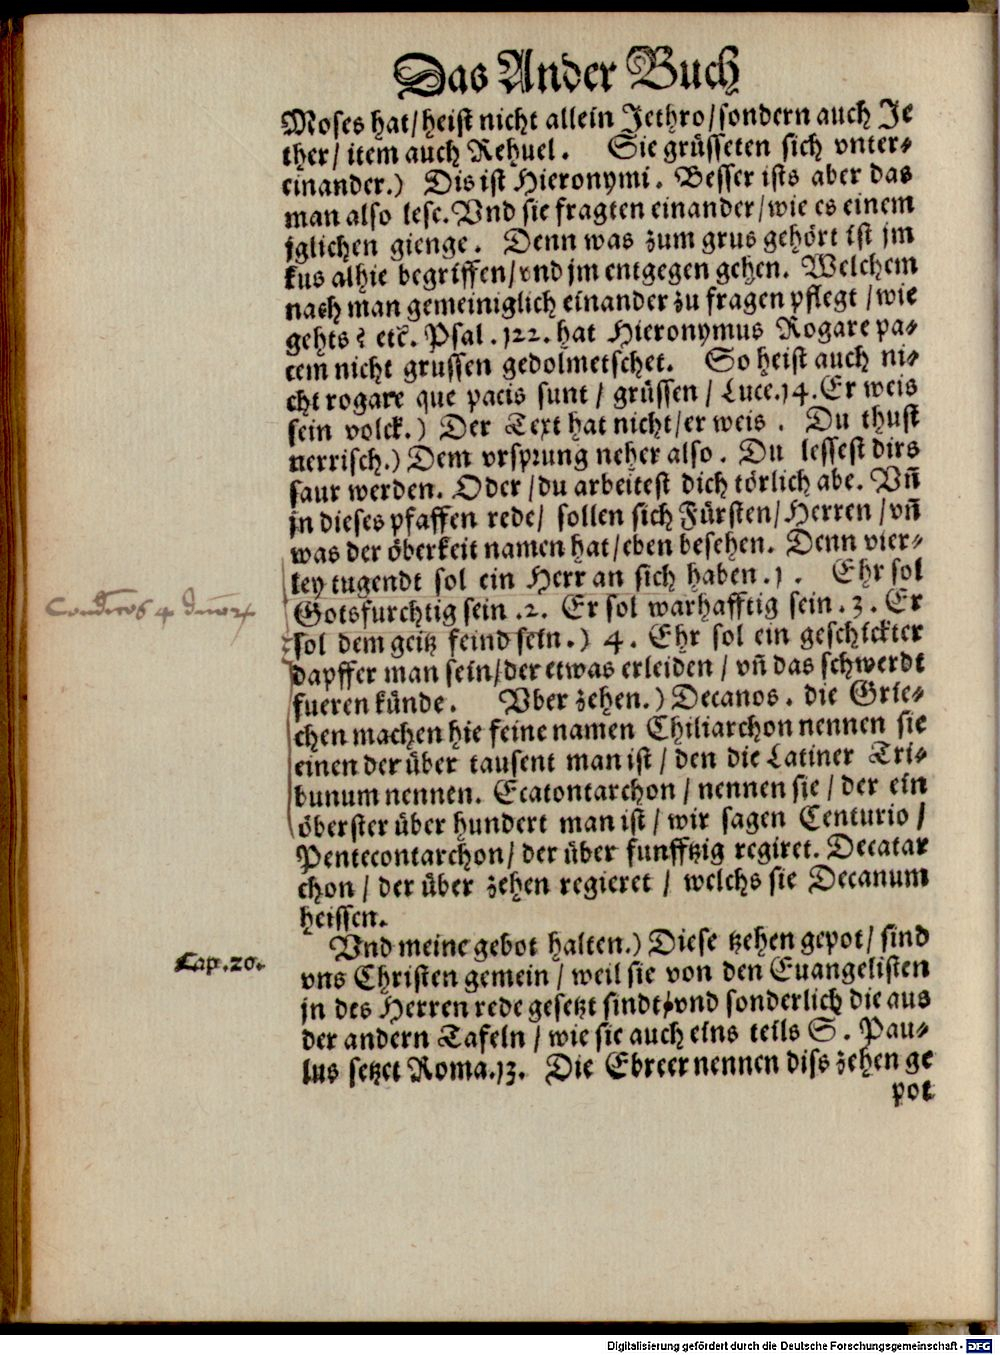 Das Ander Buch
Moses hat/ heist nicht allein Jethro/ sondern auch Je
ther/ item auch Rehuel. Sie grüsseten sich vnter-
einander.) Dis ist Hieronymi. Besser ists aber das
man also lese. Vnd sie fragten einander/ wie es einem
jglichen gienge. Denn was zum grus gehört ist jm
kus alhie begriffen/ vnd jm entgegen gehen. Welchem
nach man gemeiniglich einander zu fragen pflegt/ wie
gehts? etc. Psal. 122. hat Hieronymus Rogare pa-
cem nicht grussen gedolmetschet. So heist auch ni-
cht rogare que pacis sunt/ grüssen/ Luce. 14. Er weis
sein volck.) Der Text hat nicht/ er weis. Du thust
nerrisch.) Dem vrsprung neher also. Du lessest dirs
saur werden. Oder/ du arbeitest dich törlich abe. Vñ
jn dieses pfaffen rede/ sollen sich Fürsten/ Herren/ vñ
was der öberkeit namen hat/ eben besehen. Denn vier-
ley tugendt sol ein Herr an sich haben. 1. Ehr sol
Gotsfurchtig sein. 2. Er sol warhafftig sein. 3. Er
sol dem geitz feind sein.) 4. Ehr sol ein geschickter
dapffer man sein/ der etwas erleiden/ vñ das schwerdt
fueren künde. Vber zehen.) Decanos. die Grie-
chen machen hie feine namen Chiliarchon nennen sie
einen der über tausent man ist/ den die Latiner Tri-
bunum nennen. Ecatontarchon/ nennen sie/ der ein
öberster über hundert man ist/ wir sagen Centurio/
Pentecontarchon/ der über funfftzig regiret. Decatar
chon/ der über zehen regieret/ welchs sie Decanum
heissen.
Cap. 20.
Vnd meine gebot halten.) Diese tzehen gepot/ sind
vns Christen gemein/ weil sie von den Euangelisten
jn des Herren rede gesetzt sindt/ vnd sonderlich die aus
der andern Tafeln/ wie sie auch eins teils S. Pau-
lus setzet Roma. 13. Die Ebreer nennen diss zehen ge
pot
Digitalisierung gefördert durch die Deutsche Forschungsgemeinschaft - DFG